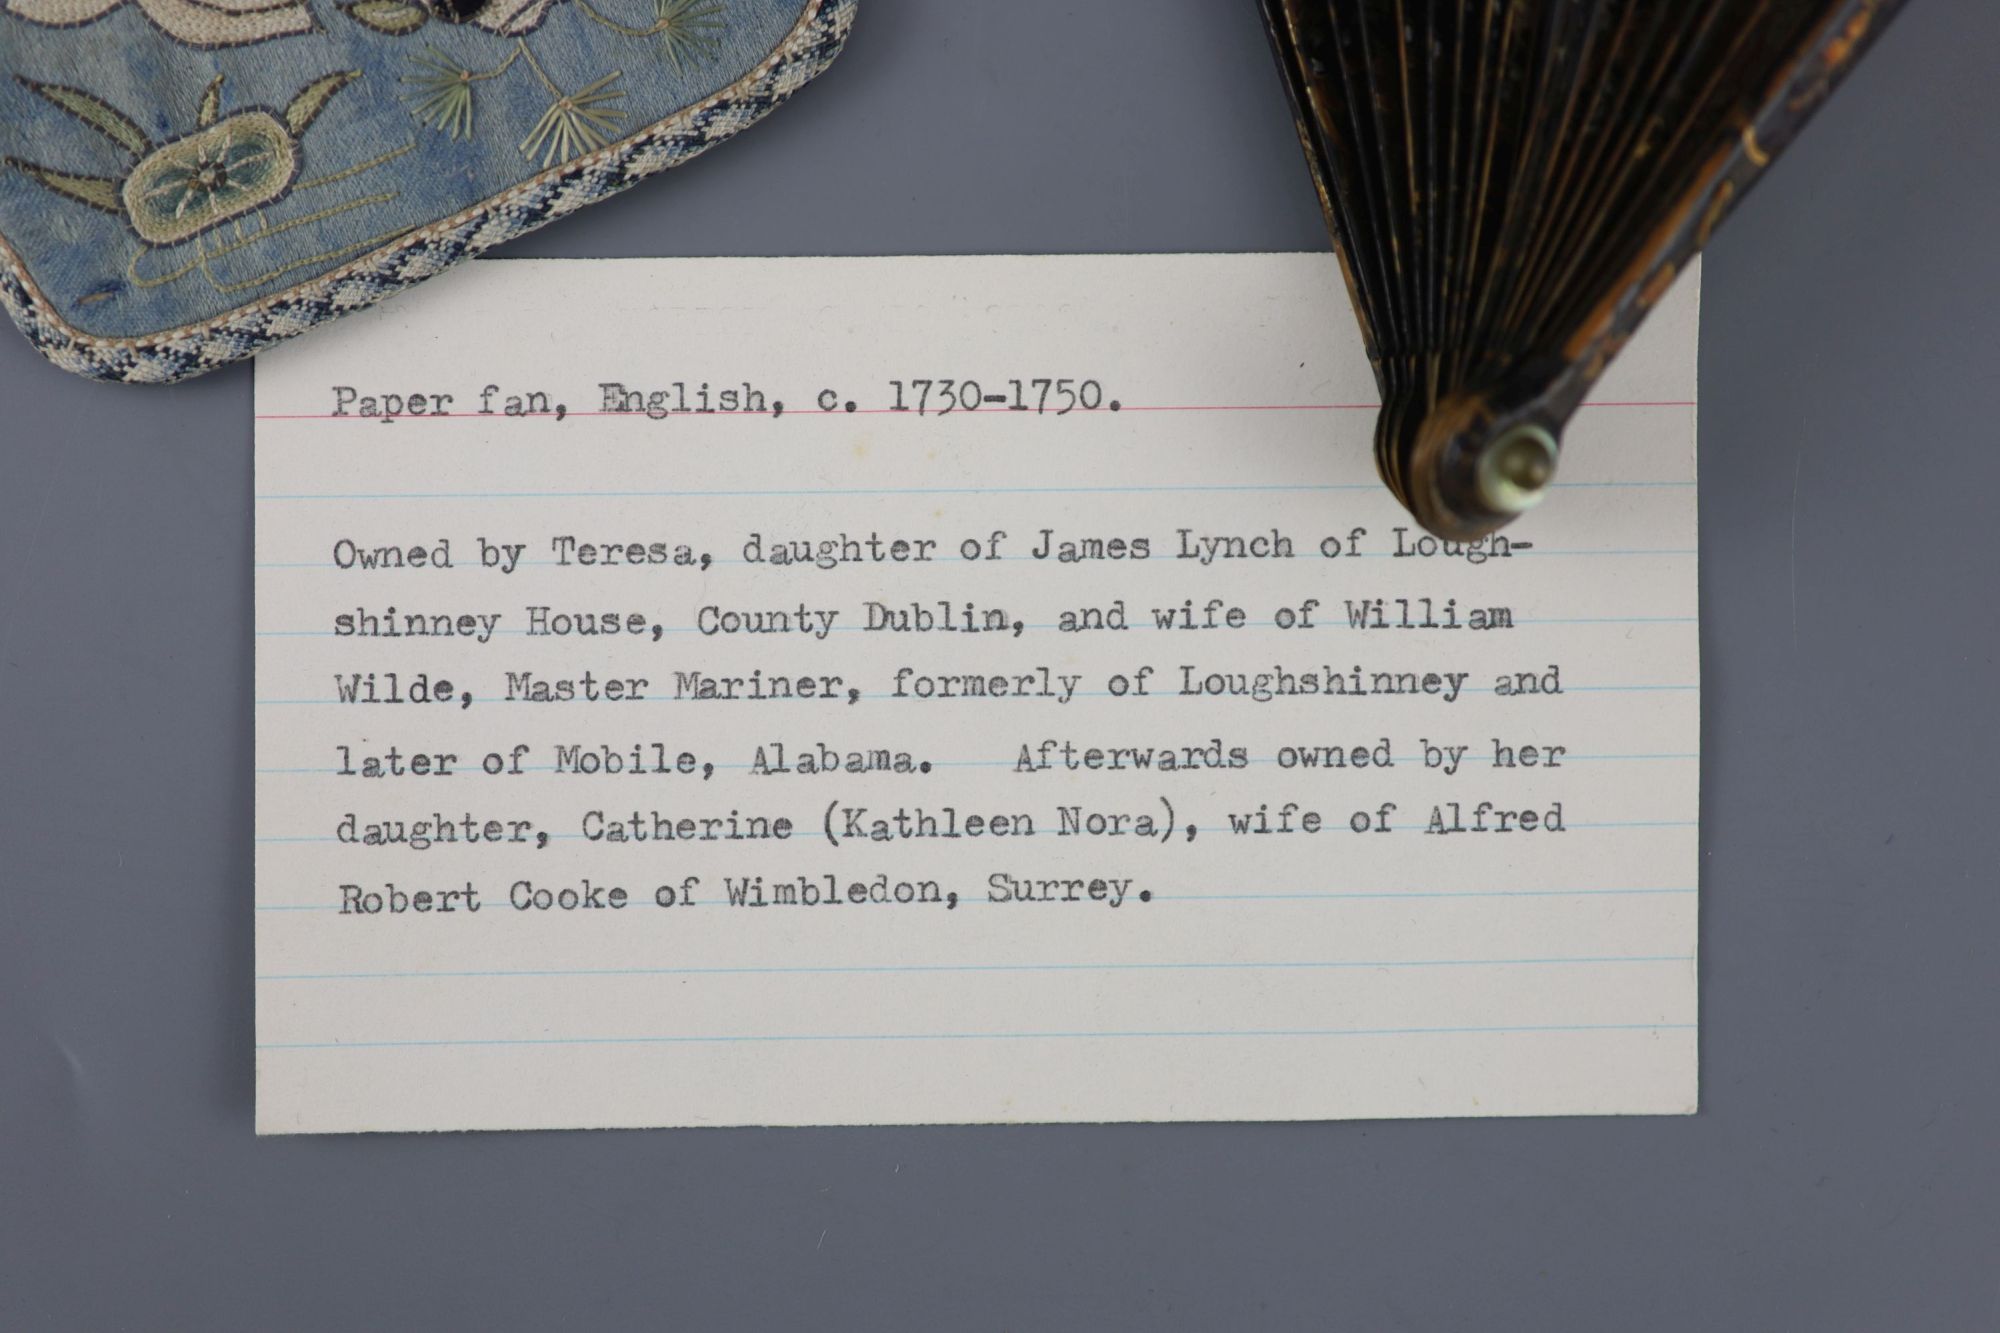 Paper fan, English, c. 1730-1750.
Owned by Teresa, daughter of James Lynch of Lough-
shinney House, County Dublin, and wife of William
Wilde, Master Mariner, formerly of Loughshinney and
later of Mobile, Alabama. Afterwards owned by her
daughter, Catherine (Kathleen Nora), wife of Alfred
Robert Cooke of Wimbledon, Surrey.